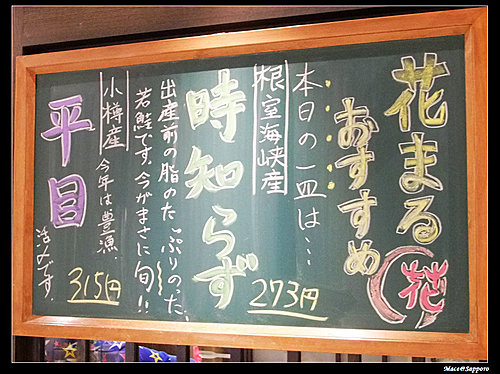 花まる
おすすめ
花
本日の一皿は…
根室海峡産
時知らず
273円
出産前の脂のたっぷりのった、
若鮭です。今がまさに旬!!
小樽産
今年は豊漁
平目
活〆です。
315円
Mace@Sapporo